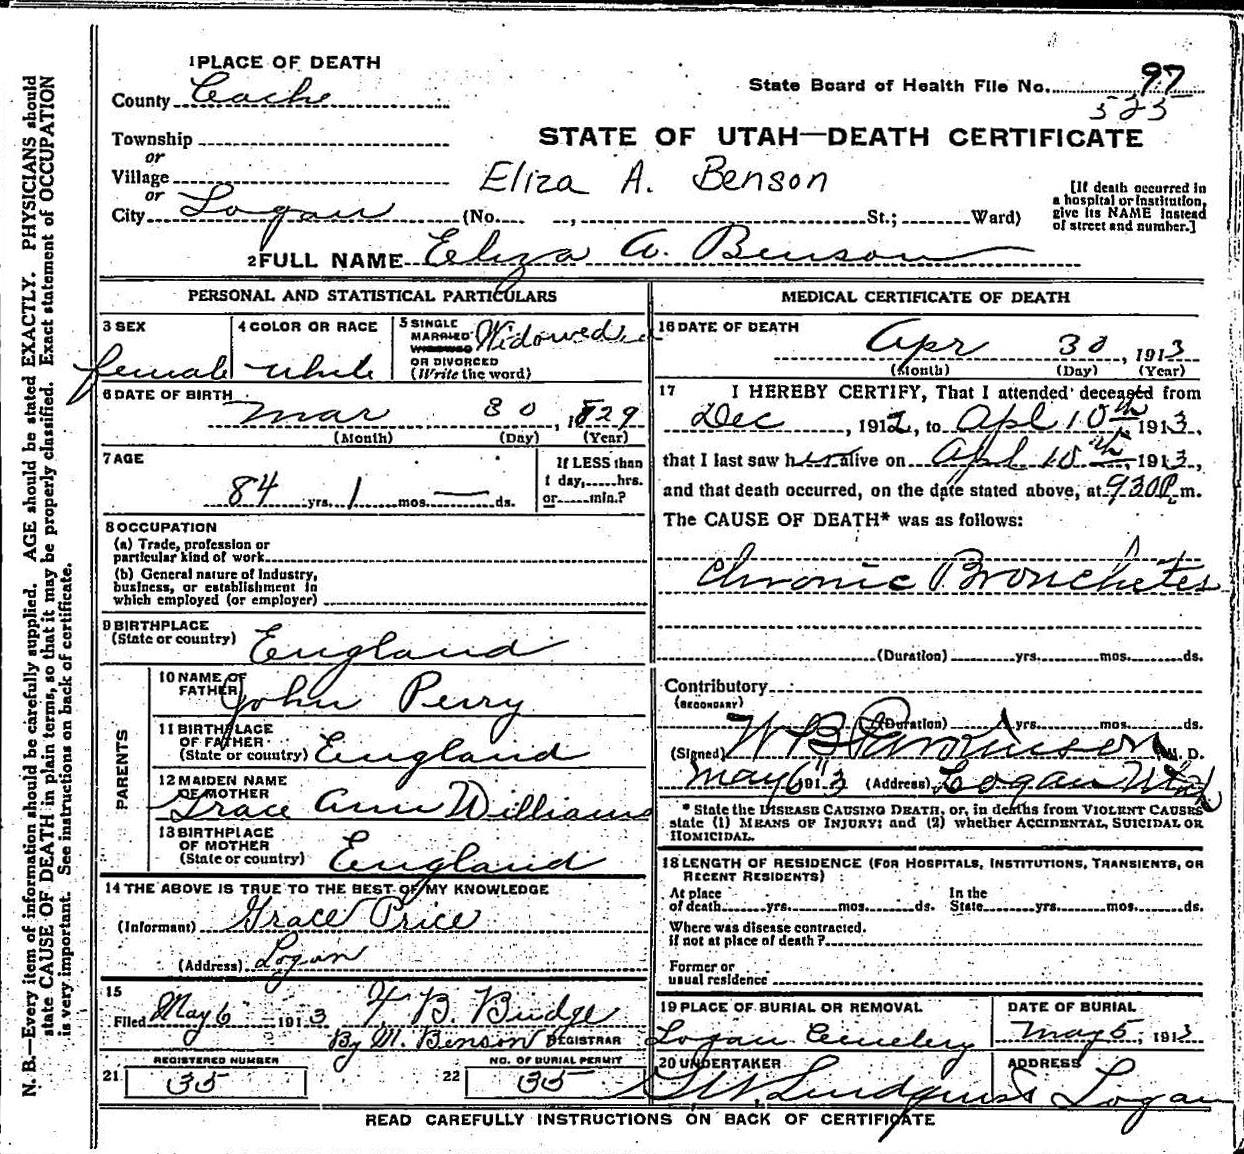 1 PLACE OF DEATH
County Cache
State Board of Health File No. 97
525
STATE OF UTAH—DEATH CERTIFICATE
Township
or
Village
Eliza A. Benson
or
City Logan (No. , St.; Ward)
[If death occurred in
a hospital or institution,
give its NAME instead
of street and number.]
2 FULL NAME Eliza A. Benson
PERSONAL AND STATISTICAL PARTICULARS
3 SEX
female
4 COLOR OR RACE
white
5 SINGLE
MARRIED
WIDOWED
OR DIVORCED
(Write the word)
Widowed
6 DATE OF BIRTH
Mar 30, 1829
(Month) (Day) (Year)
7 AGE
84 yrs. 1 mos. — ds.
If LESS than
1 day, hrs.
or min.?
8 OCCUPATION
(a) Trade, profession or
particular kind of work
(b) General nature of Industry,
business, or establishment in
which employed (or employer)
9 BIRTHPLACE
(State or country) England
PARENTS
10 NAME OF
FATHER John Perry
11 BIRTHPLACE
OF FATHER
(State or country) England
12 MAIDEN NAME
OF MOTHER
Grace Ann Williams
13 BIRTHPLACE
OF MOTHER
(State or country) England
14 THE ABOVE IS TRUE TO THE BEST OF MY KNOWLEDGE
(Informant) Grace Price
(Address) Logan
15
Filed May 6 1913 B. Budge
By M. Benson REGISTRAR
REGISTERED NUMBER
21 35
NO. OF BURIAL PERMIT
22 35
MEDICAL CERTIFICATE OF DEATH
16 DATE OF DEATH
Apr 30, 1913
(Month) (Day) (Year)
17 I HEREBY CERTIFY, That I attended deceased from
Dec, 1912, to Apl 10th 1913,
that I last saw her alive on Apl 10th, 1913,
and that death occurred, on the date stated above, at 9 30 P. m.
The CAUSE OF DEATH* was as follows:
Chronic Bronchetes
(Duration) yrs. mos. ds.
Contributory
(SECONDARY)
(Duration) yrs. mos. ds.
(Signed) W B Parkinson M. D.
May 6" 1913 (Address) Logan Utah
* State the DISEASE CAUSING DEATH, or, in deaths from VIOLENT CAUSES
state (1) MEANS OF INJURY; and (2) whether ACCIDENTAL, SUICIDAL OR
HOMICIDAL.
18 LENGTH OF RESIDENCE (FOR HOSPITALS, INSTITUTIONS, TRANSIENTS, OR
RECENT RESIDENTS)
At place
of death yrs. mos. ds.
In the
State yrs. mos. ds.
Where was disease contracted.
if not at place of death?
Former or
usual residence
19 PLACE OF BURIAL OR REMOVAL
Logan Cemetery
DATE OF BURIAL
May 5, 1913
20 UNDERTAKER
Lindquist
ADDRESS
Logan
READ CAREFULLY INSTRUCTIONS ON BACK OF CERTIFICATE
N. B.—Every item of information should be carefully supplied. AGE should be stated EXACTLY. PHYSICIANS should
state CAUSE OF DEATH in plain terms, so that it may be properly classified. Exact statement of OCCUPATION
is very important. See instructions on back of certificate.